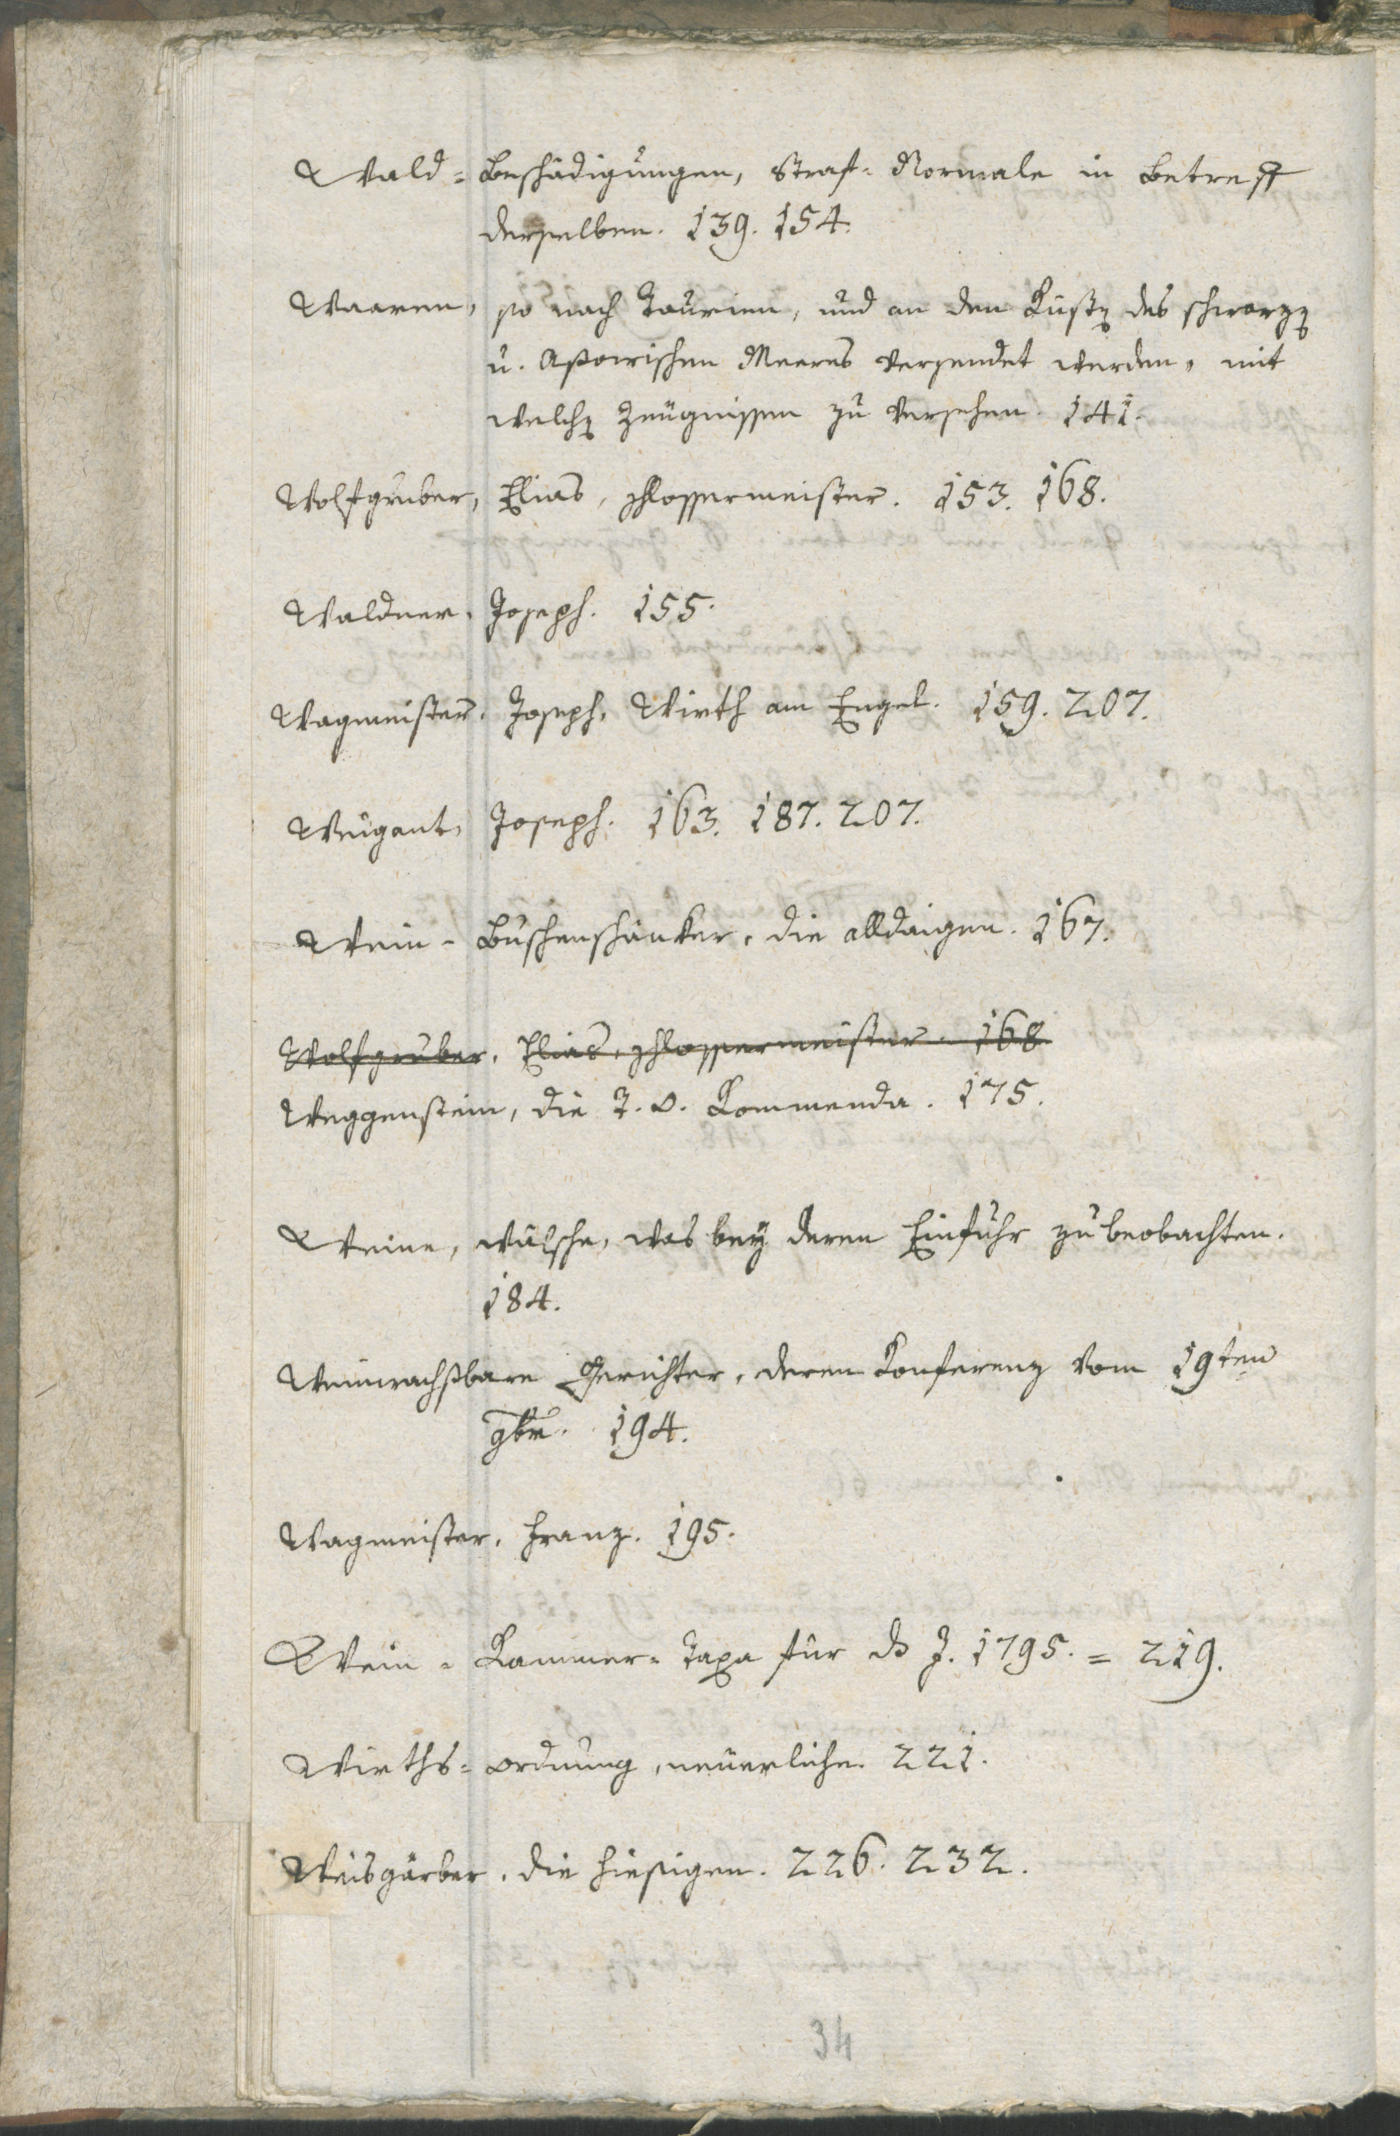 Wald- Beschädigungen, Straf- Normale in Betreff
derselben. 139. 154.
Waaren, so nach Taurien, und an den Küsten des schwarzen
u. Asowischen Meeres versendet werden, mit
welchen Zeugnissen zu versehen. 141.
Wolfgruber, Elias, Schlossermeister. 153. 168.
Waldner, Joseph. 155.
Wagmeister, Joseph, Wirth am Engel. 159. 207.
Weugant, Joseph. 163. 187. 207.
Wein- Buschenschänker, die alldaigen. 167.
Wolfgruber, Elias, Schlossermeister. 168
Weggenstein, die T. O. Kommenda. 175.
Weine, wälsche, was bey deren Einfuhr zu beobachten.
184.
Weinwachsbare Gerichter, deren Konferenz vom 19ten
9br. 194.
Wagmeister, Franz. 195.
Wein- Kammer- Taxa für ds J. 1795. = 219.
Wirths- ordnung, neuerliche. 221.
Weisgärber, die hiesigen. 226. 232.
34